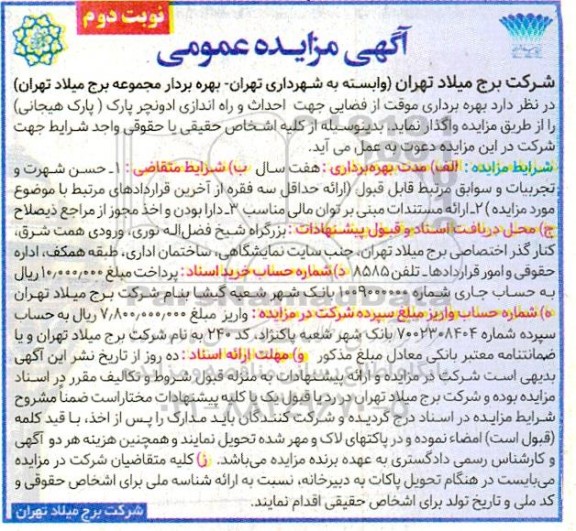 نوبت دوم
آگهی مزایده عمومی
شرکت برج میلاد تهران (وابسته به شهرداری تهران- بهره بردار مجموعه برج میلاد تهران)
در نظر دارد بهره برداری موقت از فضایی جهت احداث و راه اندازی ادونچر پارک ( پارک هیجانی)
را از طریق مزایده واگذار نماید. بدینوسیله از کلیه اشخاص حقیقی یا حقوقی واجد شرایط جهت
شرکت در این مزایده دعوت به عمل می آید.
شرایط مزایده : الف) مدت بهره‌برداری : هفت سال ب) شرایط متقاضی : ۱ـ حسن شهرت و
تجربیات و سوابق مرتبط قابل قبول (ارائه حداقل سه فقره از آخرین قراردادهای مرتبط با موضوع
مورد مزایده) ۲ـ ارائه مستندات مبنی بر توان مالی مناسب ۳ـ دارا بودن و اخذ مجوز از مراجع ذیصلاح
ج) محل دریافت اسناد و قبول پیشنهادات : بزرگراه شیخ فضل‌اله نوری، ورودی همت شرق،
کنار گذر اختصاصی برج میلاد تهران، جنب سایت نمایشگاهی، ساختمان اداری، طبقه همکف، اداره
حقوقی و امور قراردادها ـ تلفن ۸۵۸۵ د) شماره حساب خرید اسناد : پرداخت مبلغ ۱۰,۰۰۰,۰۰۰ ریال
به حساب جاری شماره بانک شهر شعبه گیشا بنام شرکت برج میلاد تهران
ه) شماره حساب واریز مبلغ سپرده شرکت در مزایده : واریز مبلغ ۷,۸۰۰,۰۰۰,۰۰۰ ریال به حساب
سپرده شماره ۷۰۰۲۳۰۸۴۰۴ بانک شهر شعبه پاکنژاد، کد ۲۴۰ به نام شرکت برج میلاد تهران و یا
ضمانتنامه معتبر بانکی معادل مبلغ مذکور و) مهلت ارائه اسناد : ده روز از تاریخ نشر این آگهی
بدیهی است شرکت در مزایده و ارائه پیشنهادات به منزله قبول شروط و تکالیف مقرر در اسناد
مزایده بوده و شرکت برج میلاد تهران در رد یا قبول یک یا کلیه پیشنهادات مختار است ضمناً مشروح
شرایط مزایده در اسناد درج گردیده و شرکت کنندگان باید مدارک را پس از اخذ، با قید کلمه
(قبول است) امضاء نموده و در پاکتهای لاک و مهر شده تحویل نمایند و همچنین هزینه هر دو آگهی
و کارشناس رسمی دادگستری به عهده برنده مزایده می‌باشد. ز) کلیه متقاضیان شرکت در مزایده
می‌بایست در هنگام تحویل پاکات به دبیرخانه، نسبت به ارائه شناسه ملی برای اشخاص حقوقی و
کد ملی و تاریخ تولد برای اشخاص حقیقی اقدام نمایند.
شرکت برج میلاد تهران